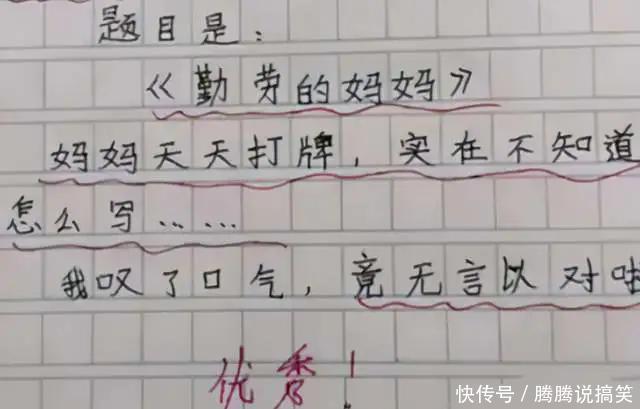 题目是：
《勤劳的妈妈》
妈妈天天打牌，实在不知道
怎么写……
我叹了口气，竟无言以对
优秀！
快传号/腾腾说搞笑